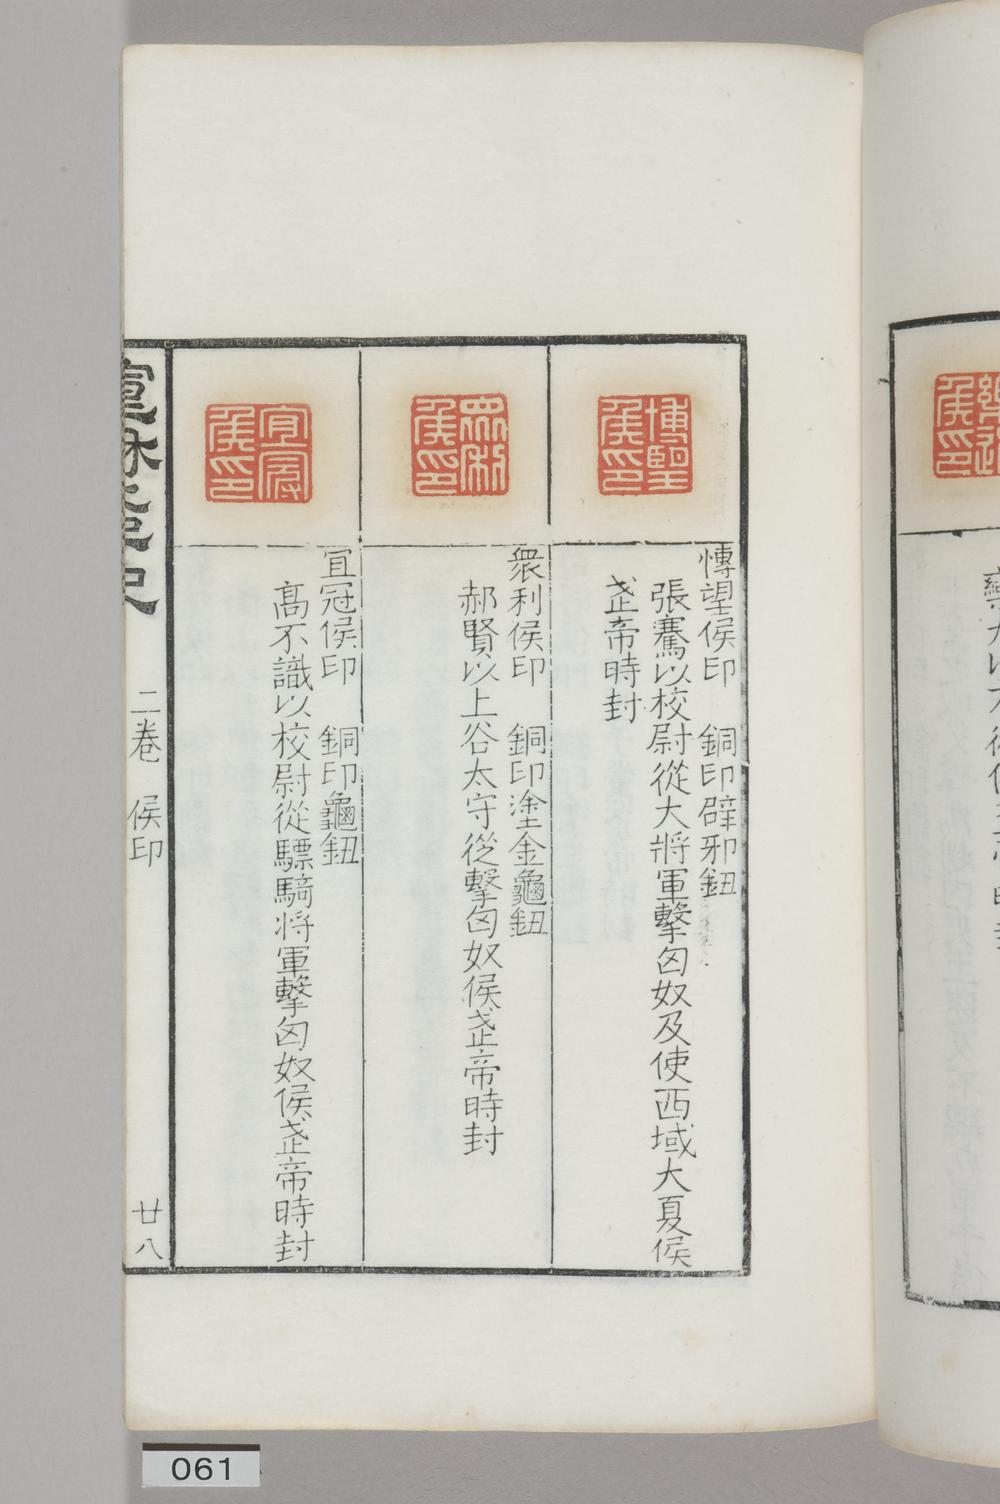 博望
侯印
博望侯印　銅印辟邪鈕
張騫以校尉從大將軍擊匈奴及使西域大夏侯
武帝時封
眾利
侯印
眾利侯印　銅印塗金龜鈕
郝賢以上谷太守從擊匈奴侯武帝時封
宜冠
侯印
宜冠侯印　銅印龜鈕
高不識以校尉從驃騎將軍擊匈奴侯武帝時封
宣和集古印史　二卷　侯印　廿八
061